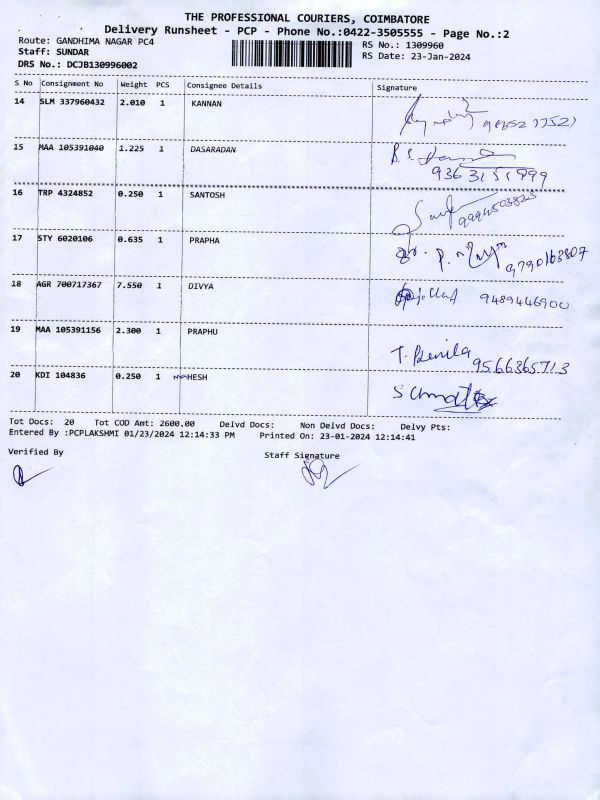 THE PROFESSIONAL COURIERS, COIMBATORE
Delivery Runsheet - PCP - Phone No.:0422-3505555 - Page No.:2
Route: GANDHIMA NAGAR PC4
RS No.: 1309960
Staff: SUNDAR
RS Date: 23-Jan-2024
DRS No.: DCJB130996002
S No Consignment No Weight PCS Consignee Details Signature
14 SLM 337960432 2.010 1 KANNAN
15 MAA 105391040 1.225 1 DASARADAN
9363151999
16 TRP 4324852 0.250 1 SANTOSH
9994503823
17 STY 6020106 0.635 1 PRAPHA
9790163807
18 AGR 700717367 7.550 1 DIVYA
9489446900
19 MAA 105391156 2.300 1 PRAPHU
T. Benila 9566365713
20 KDI 104836 0.250 1 HESH
Tot Docs: 20 Tot COD Amt: 2600.00 Delvd Docs: Non Delvd Docs: Delvy Pts:
Entered By :PCPLAKSHMI 01/23/2024 12:14:33 PM Printed On: 23-01-2024 12:14:41
Verified By Staff Signature